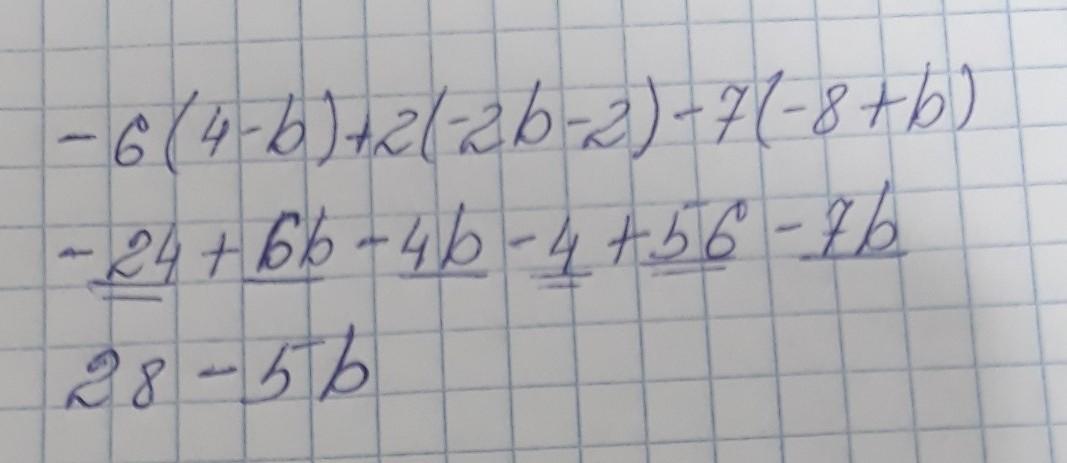 -6(4-b)+2(-2b-2)-7(-8+b)
-24+6b-4b-4+56-7b
28-5b